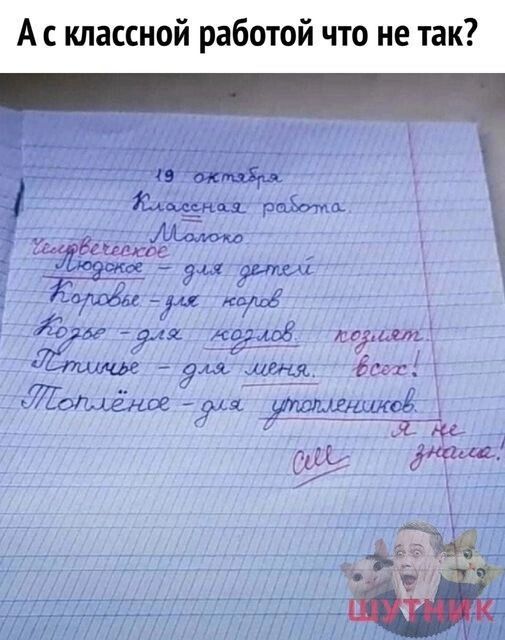 А с классной работой что не так?
19 октября
Классная работа.
Молоко
Человеческое
Людское – для детей
Коровье – для коров
Козье – для козлов. козлят.
Птичье – для меня. всех!
Топлёное – для утоплеников.
я не
см знала!
ШУТНИК